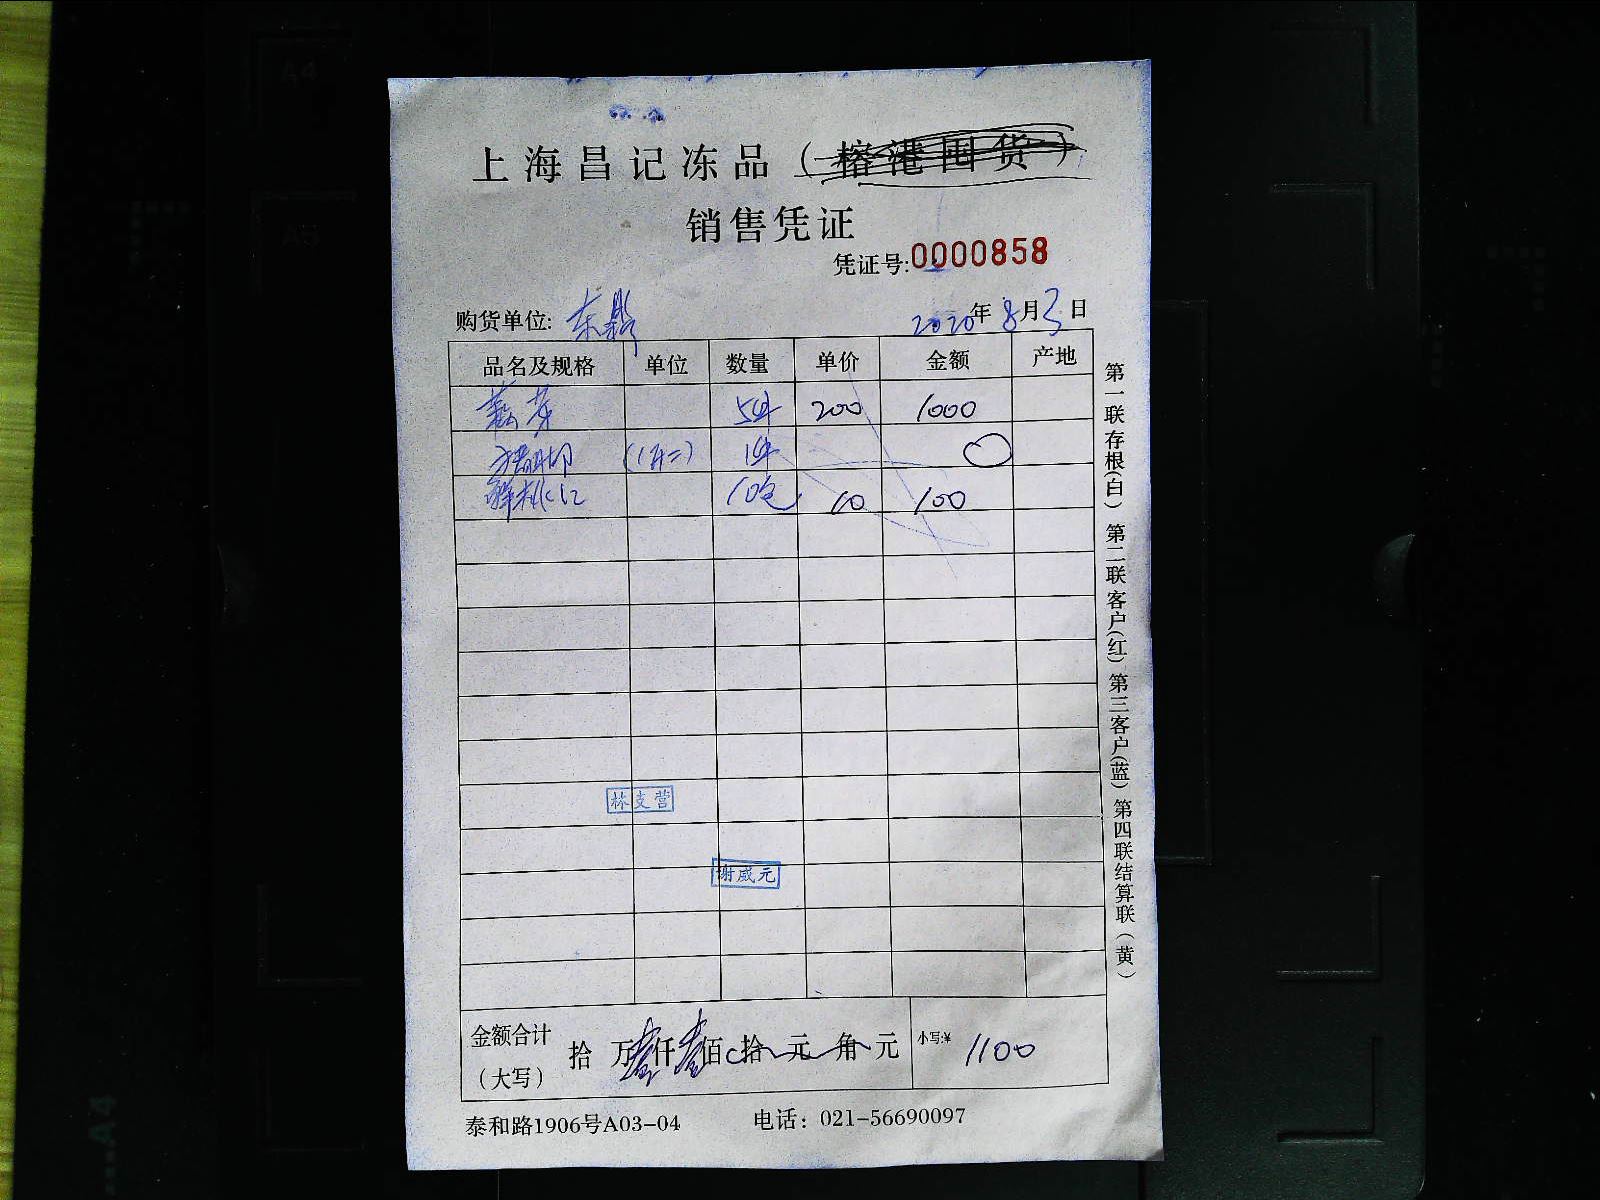 上海昌记冻品（榕港囤货）
销售凭证
凭证号:0000858
购货单位: 东 2020年8月3日
品名及规格 单位 数量 单价 金额 产地
5件 200 1000
1件 0
10包 10 100
林支营
谢威元
金额合计（大写） 拾 万壹仟壹佰 拾 元 角 元 小写:¥ 1100
泰和路1906号A03-04 电话：021-56690097
第一联存根(白) 第二联客户(红) 第三客户(蓝) 第四联结算联(黄)
A4
A5
A4